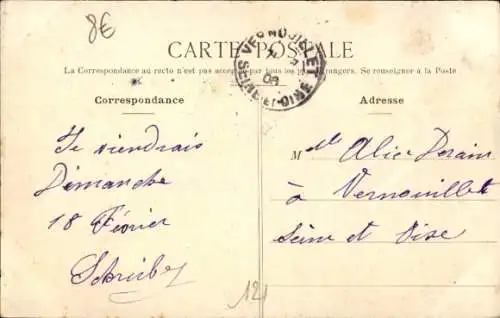 8€
CARTE POSTALE
La Correspondance au recto n'est pas acceptée par tous les pays étrangers. Se renseigner à la Poste
VERNOUILLET
SEINE-ET-OISE
09
Correspondance
Adresse
Je viendrais
Démanche
18 Février
M lle Alice Derain
à Vernouillet
Seine et Oise
12